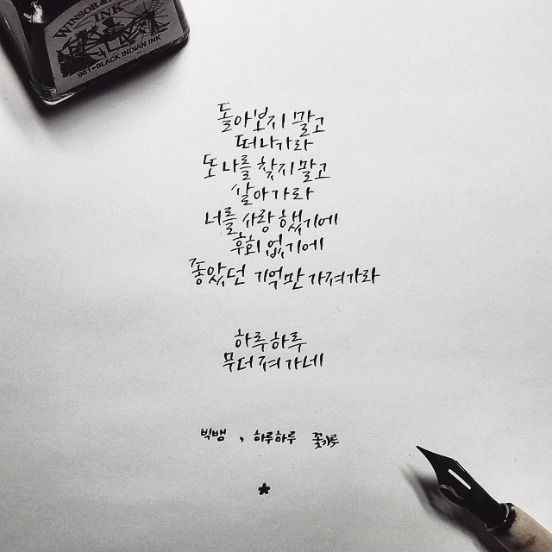 WINSOR &
INK
951 BLACK INDIAN INK
돌아보지 말고
떠나가라
또 나를 찾지 말고
살아가라
너를 사랑했기에
후회 없기에
좋았던 기억만 가져가라
하루하루
무뎌져가네
빅뱅, 하루하루 꽃가루